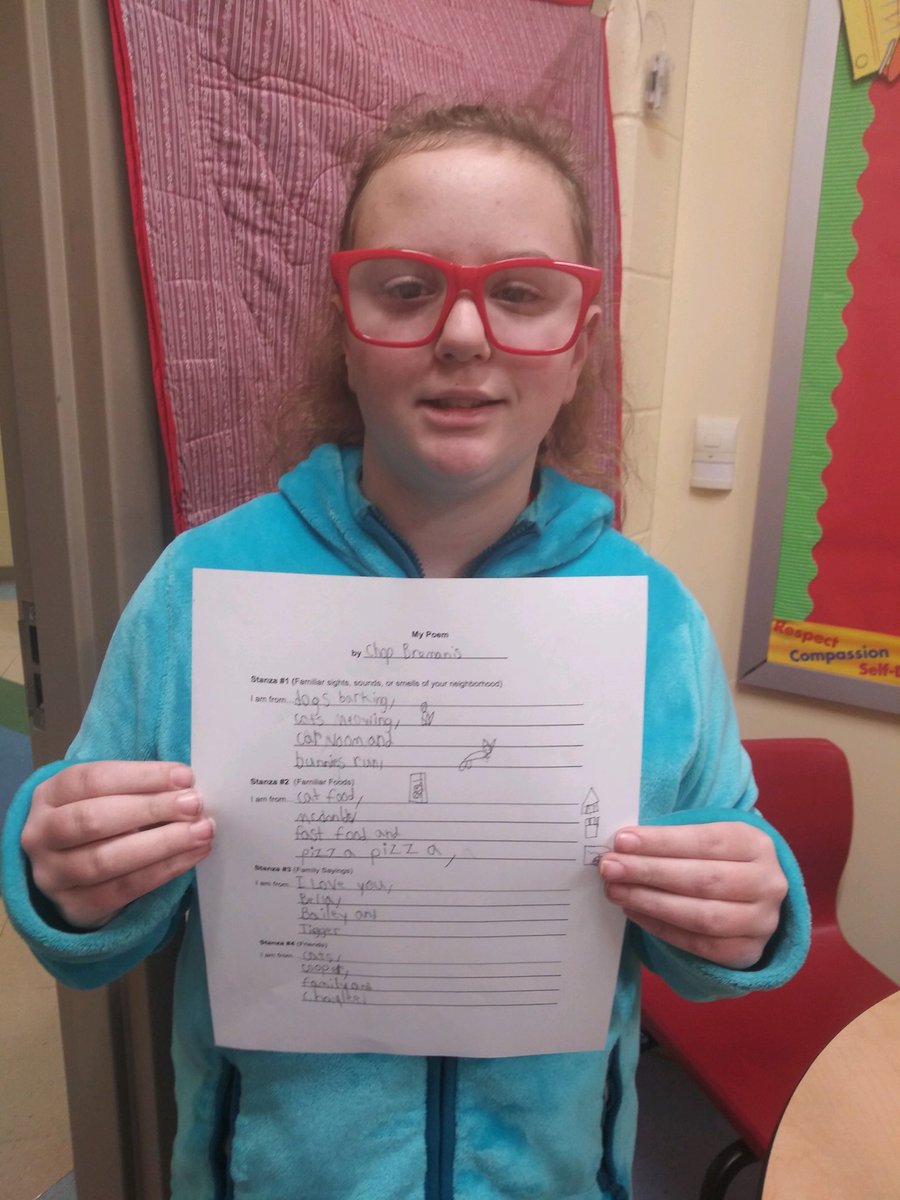 My Poem
by Chop Bremanis
Stanza #1 (Familiar sights, sounds, or smells of your neighborhood)
I am from... dogs barking,
cats mowing,
car voom and
bunnies run,
Stanza #2 (Familiar Foods)
I am from... cat food,
fast food and
pizza pizza,
Stanza #3 (Family Sayings)
I am from... I love you,
Bella,
Bailey and
Tigger
Stanza #4 (Friends)
I am from... cats,
cooper,
family and
Respect
Compassion
Self-